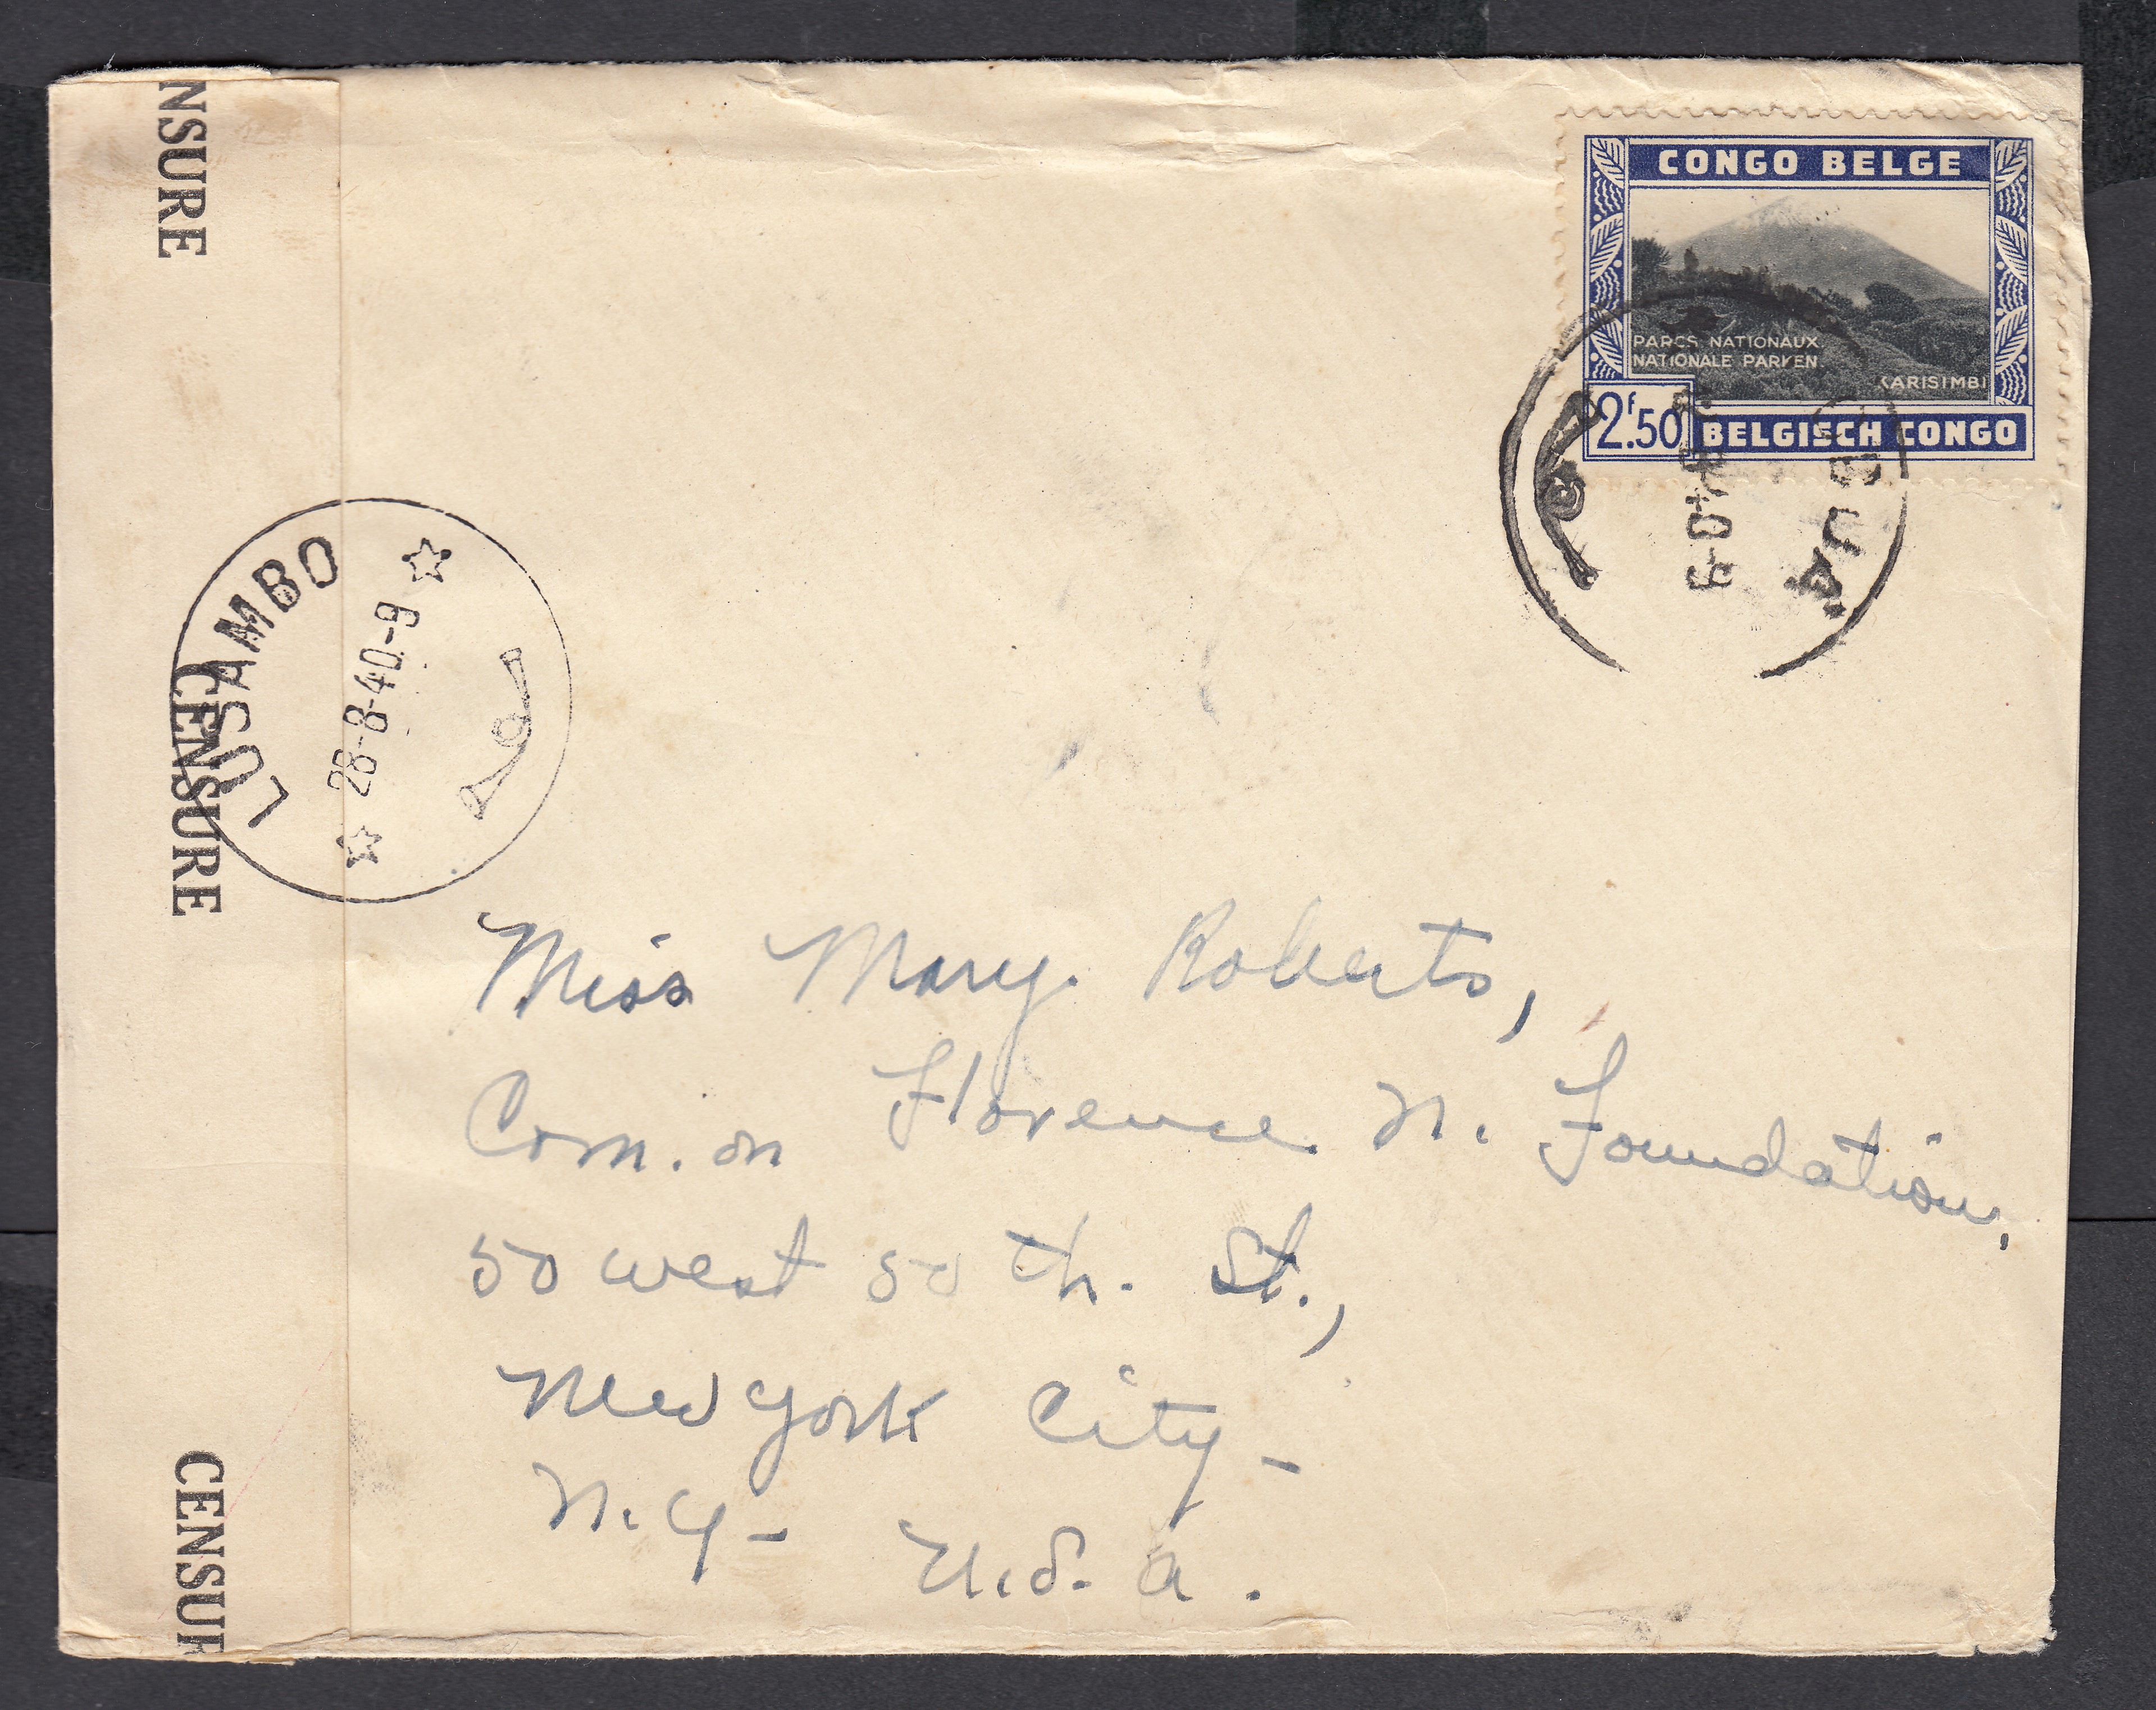 NSURE
CONGO BELGE
PARCS NATIONAUX.
NATIONALE PARKEN.
KARISIMBI
2f.50
BELGISCH CONGO
LUSAMBO
28-8-40-9
CENSURE
Miss Mary Roberts,
Com. on Florence N. Foundation,
50 West 50 th. St.,
New York City-
N.Y- U.S.A.
CENSUR